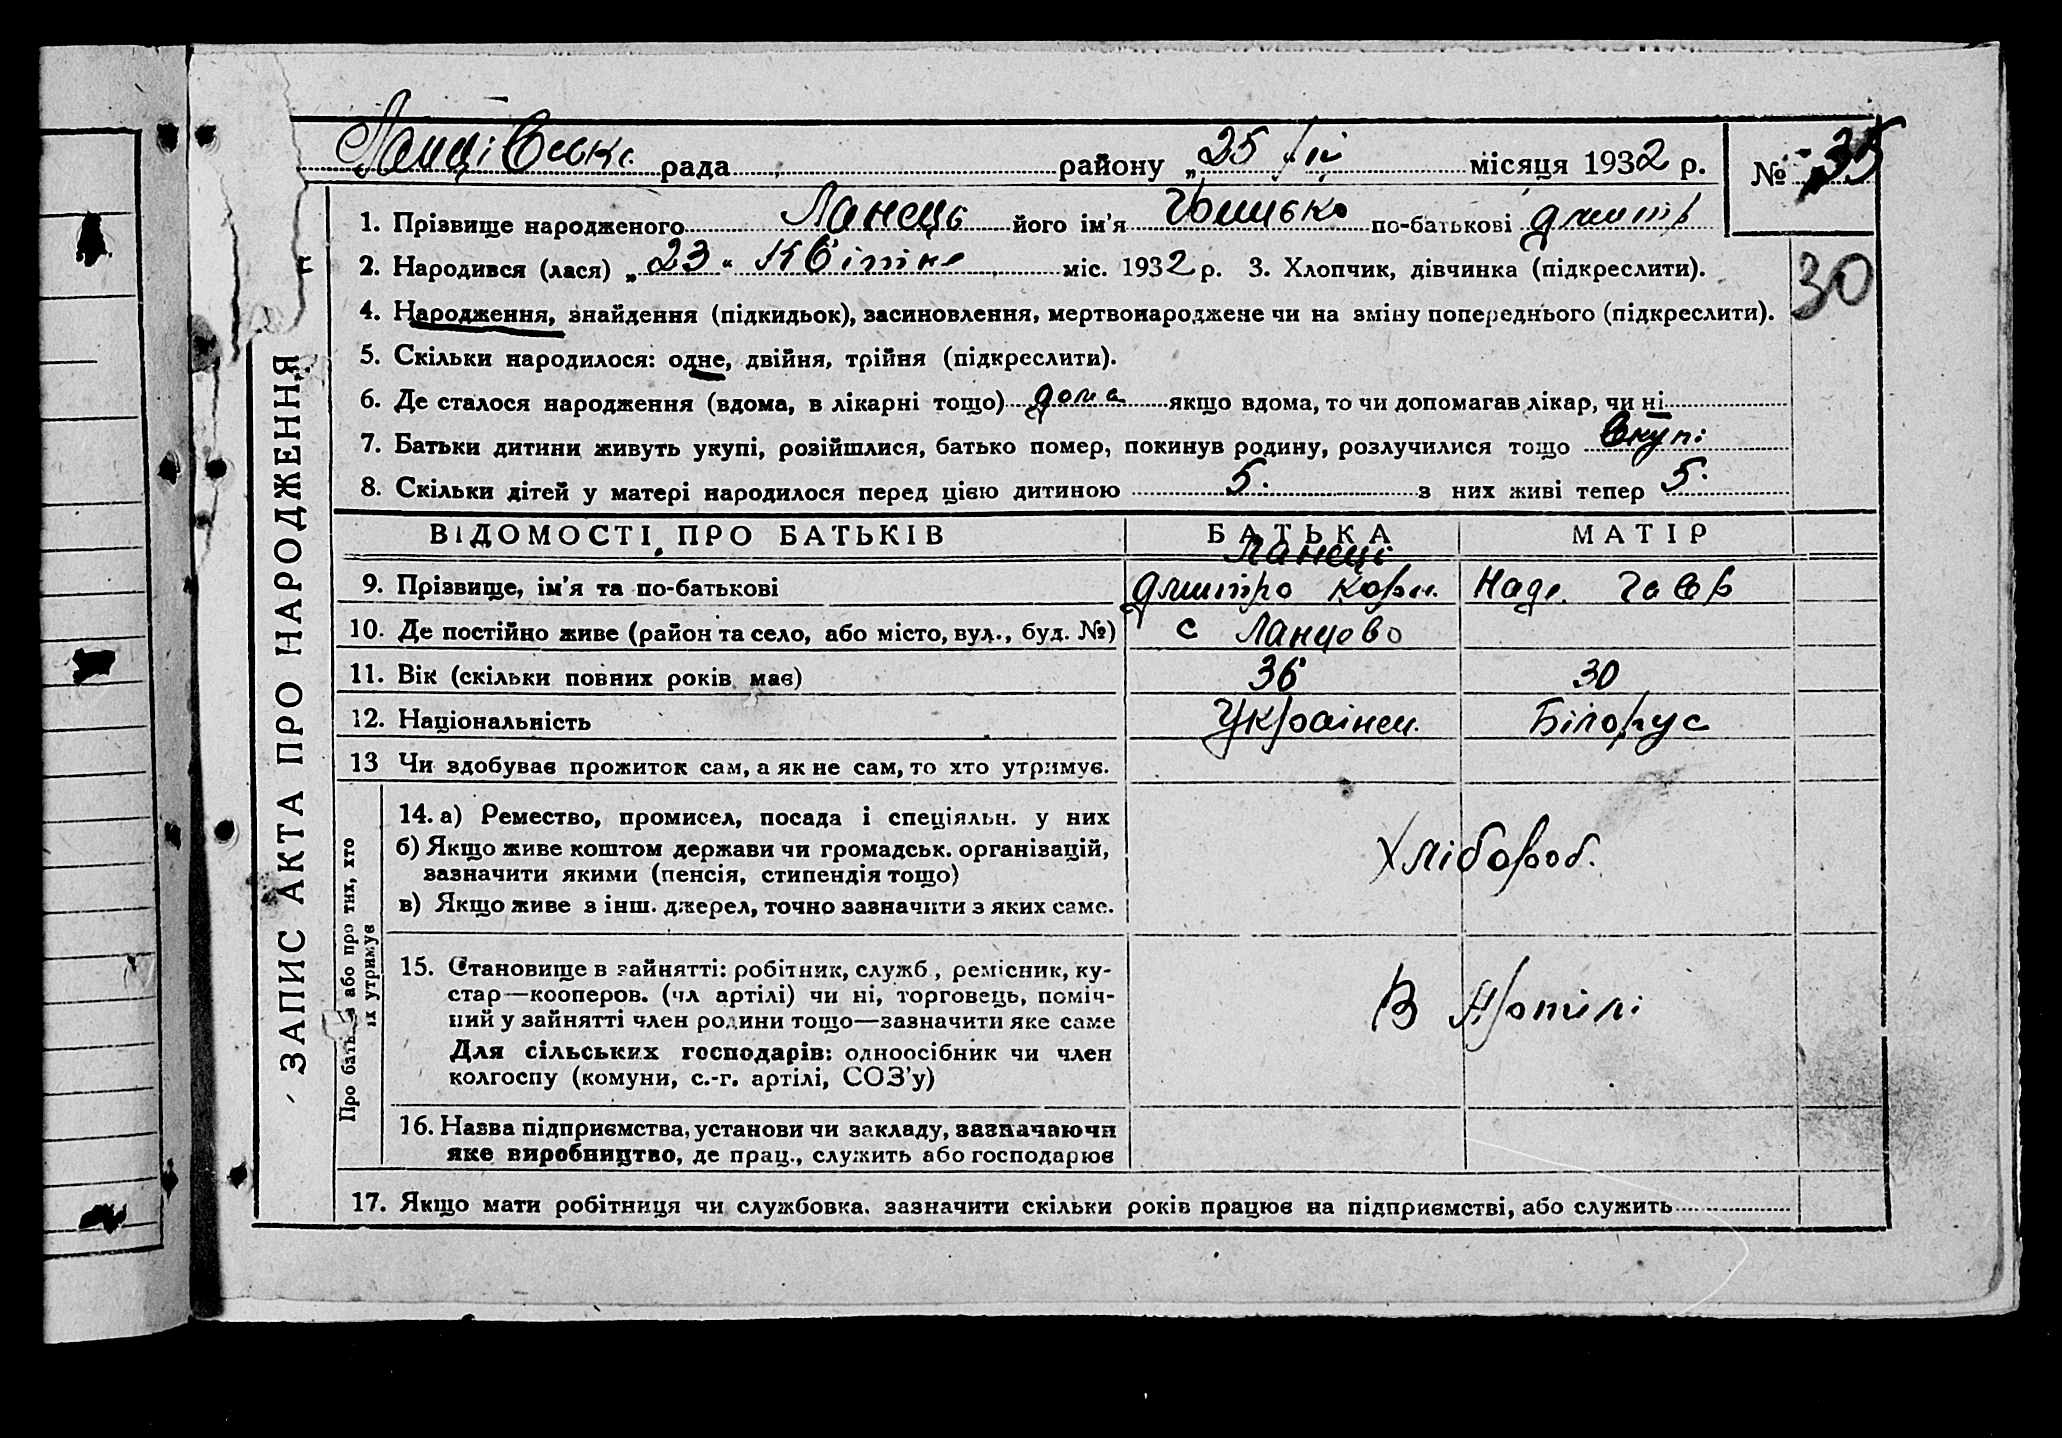 рада районе „25 місяця 1932 р. № 35
1. Прізвище народженого Ланець його ім’я Грицько по-батькові Дмитр
2. Народився (лася) „23“ Квітня міс. 1932 р. 3. Хлопчик, дівчинка (підкреслити).
30
4. Народження, знайдення (підкидьок), засиновлення, мертвонароджене чи на зміну попереднього (підкреслити).
5. Скільки народилося: одне, двійня, трійня (підкреслити).
6. Де сталося народження (вдома, в лікарні тощо) дома якщо вдома, то чи допомагав лікар, чи ні
7. Батьки дитини живуть укупі, розійшлися, батько помер, покинув родину, розлучилися тощо Вкупі
8. Скільки дітей у матері народилося перед цією дитиною 5. з них живі тепер 5.
ЗАПИС АКТА ПРО НАРОДЖЕННЯ
ВІДОМОСТІ ПРО БАТЬКІВ БАТЬКА МАТІР
Ланець
9. Прізвище, ім’я та по-батькові Дмитро Корн. Над. Гавр
10. Де постійно живе (район та село, або місто, вул., буд. №) с Ланцово
11. Вік (скільки повних років має) 36 30
12. Національність Українец. Білорус
13 Чи здобуває прожиток сам, а як не сам, то хто утримує.
Про батьків або про тих, хто
їх утримує
14. а) Ремество, промисел, посада і спеціяльн. у них
б) Якщо живе коштом держави чи громадськ. організацій,
зазначити якими (пенсія, стипендія тощо)
Хлібороб.
в) Якщо живе з інш. джерел, точно зазначити з яких саме.
15. Становище в зайнятті: робітник, служб., ремісник, ку-
стар—кооперов. (чл артілі) чи ні, торговець, поміч-
ний у зайнятті член родини тощо—зазначити яке саме
В Артілі
Для сільських господарів: одноосібник чи член
колгоспу (комуни, с.-г. артілі, СОЗ’у)
16. Назва підприємства, установи чи закладу, зазначаючи
яке виробництво, де прац., служить або господарює
17. Якщо мати робітниця чи службовка. зазначити скільки років працює на підприємстві, або служить